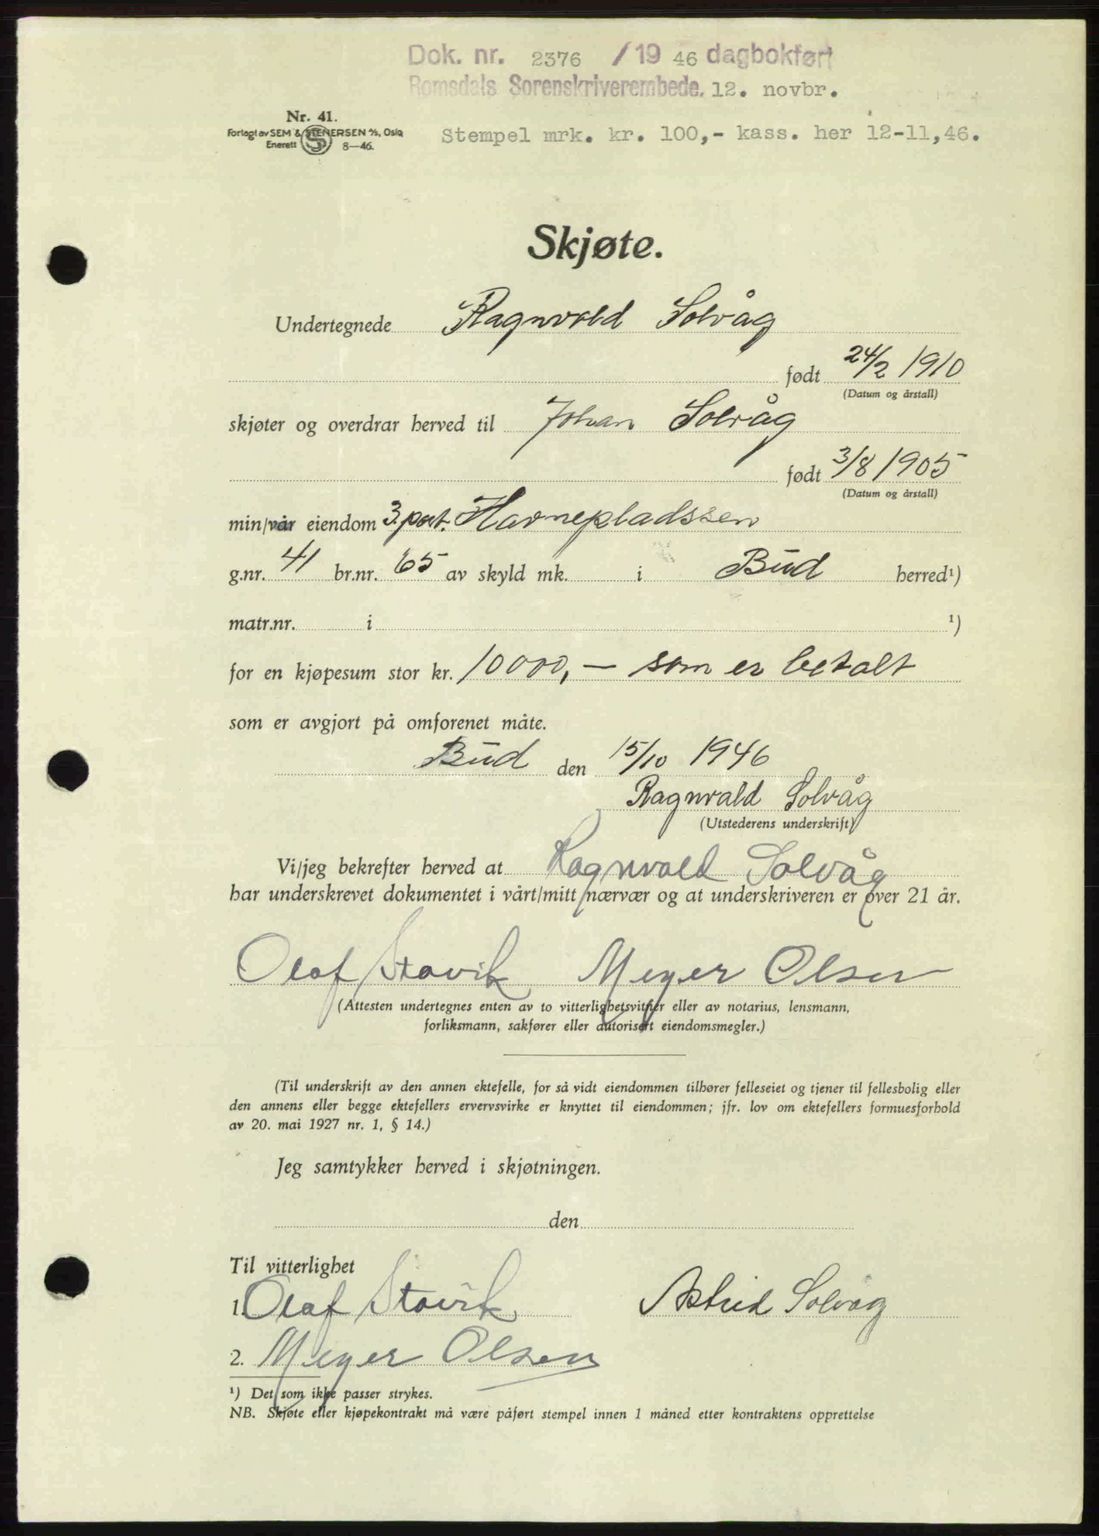 Dok. nr. 2376 / 19 46 dagbokført
Romsdals Sorenskriverembede. 12. novbr.
Nr. 41.
Forlagt av SEM & STENERSEN A/S, Oslo
Enerett 8—46.
Stempel mrk. kr. 100,- kass. her 12-11,46.
Skjøte.
Undertegnede Ragnvald Solvåg
født 24/2 1910
(Datum og årstall)
skjøter og overdrar herved til Johan Solvåg
født 3/8 1905
(Datum og årstall)
min/vår eiendom 3. part. Havnepladssen
g.nr. 41 br.nr. 65 av skyld mk. i Bud herred¹)
matr.nr. i ¹)
for en kjøpesum stor kr. 10000,— som er betalt
som er avgjort på omforenet måte.
Bud den 15/10 1946
Ragnvald Solvåg
(Utstederens underskrift)
Vi/jeg bekrefter herved at Ragnvald Solvåg
har underskrevet dokumentet i vårt/mitt nærvær og at underskriveren er over 21 år.
Olaf Stavik Meyer Olsen
(Attesten undertegnes enten av to vitterlighetsvitner eller av notarius, lensmann,
forliksmann, sakfører eller autorisert eiendomsmegler.)
(Til underskrift av den annen ektefelle, for så vidt eiendommen tilhører felleseiet og tjener til fellesbolig eller
den annens eller begge ektefellers ervervsvirke er knyttet til eiendommen; jfr. lov om ektefellers formuesforhold
av 20. mai 1927 nr. 1, § 14.)
Jeg samtykker herved i skjøtningen.
den
Til vitterlighet
1. Olaf Stavik Astrid Solvåg
2. Meyer Olsen
¹) Det som ikke passer strykes.
NB. Skjøte eller kjøpekontrakt må være påført stempel innen 1 måned etter kontraktens opprettelse